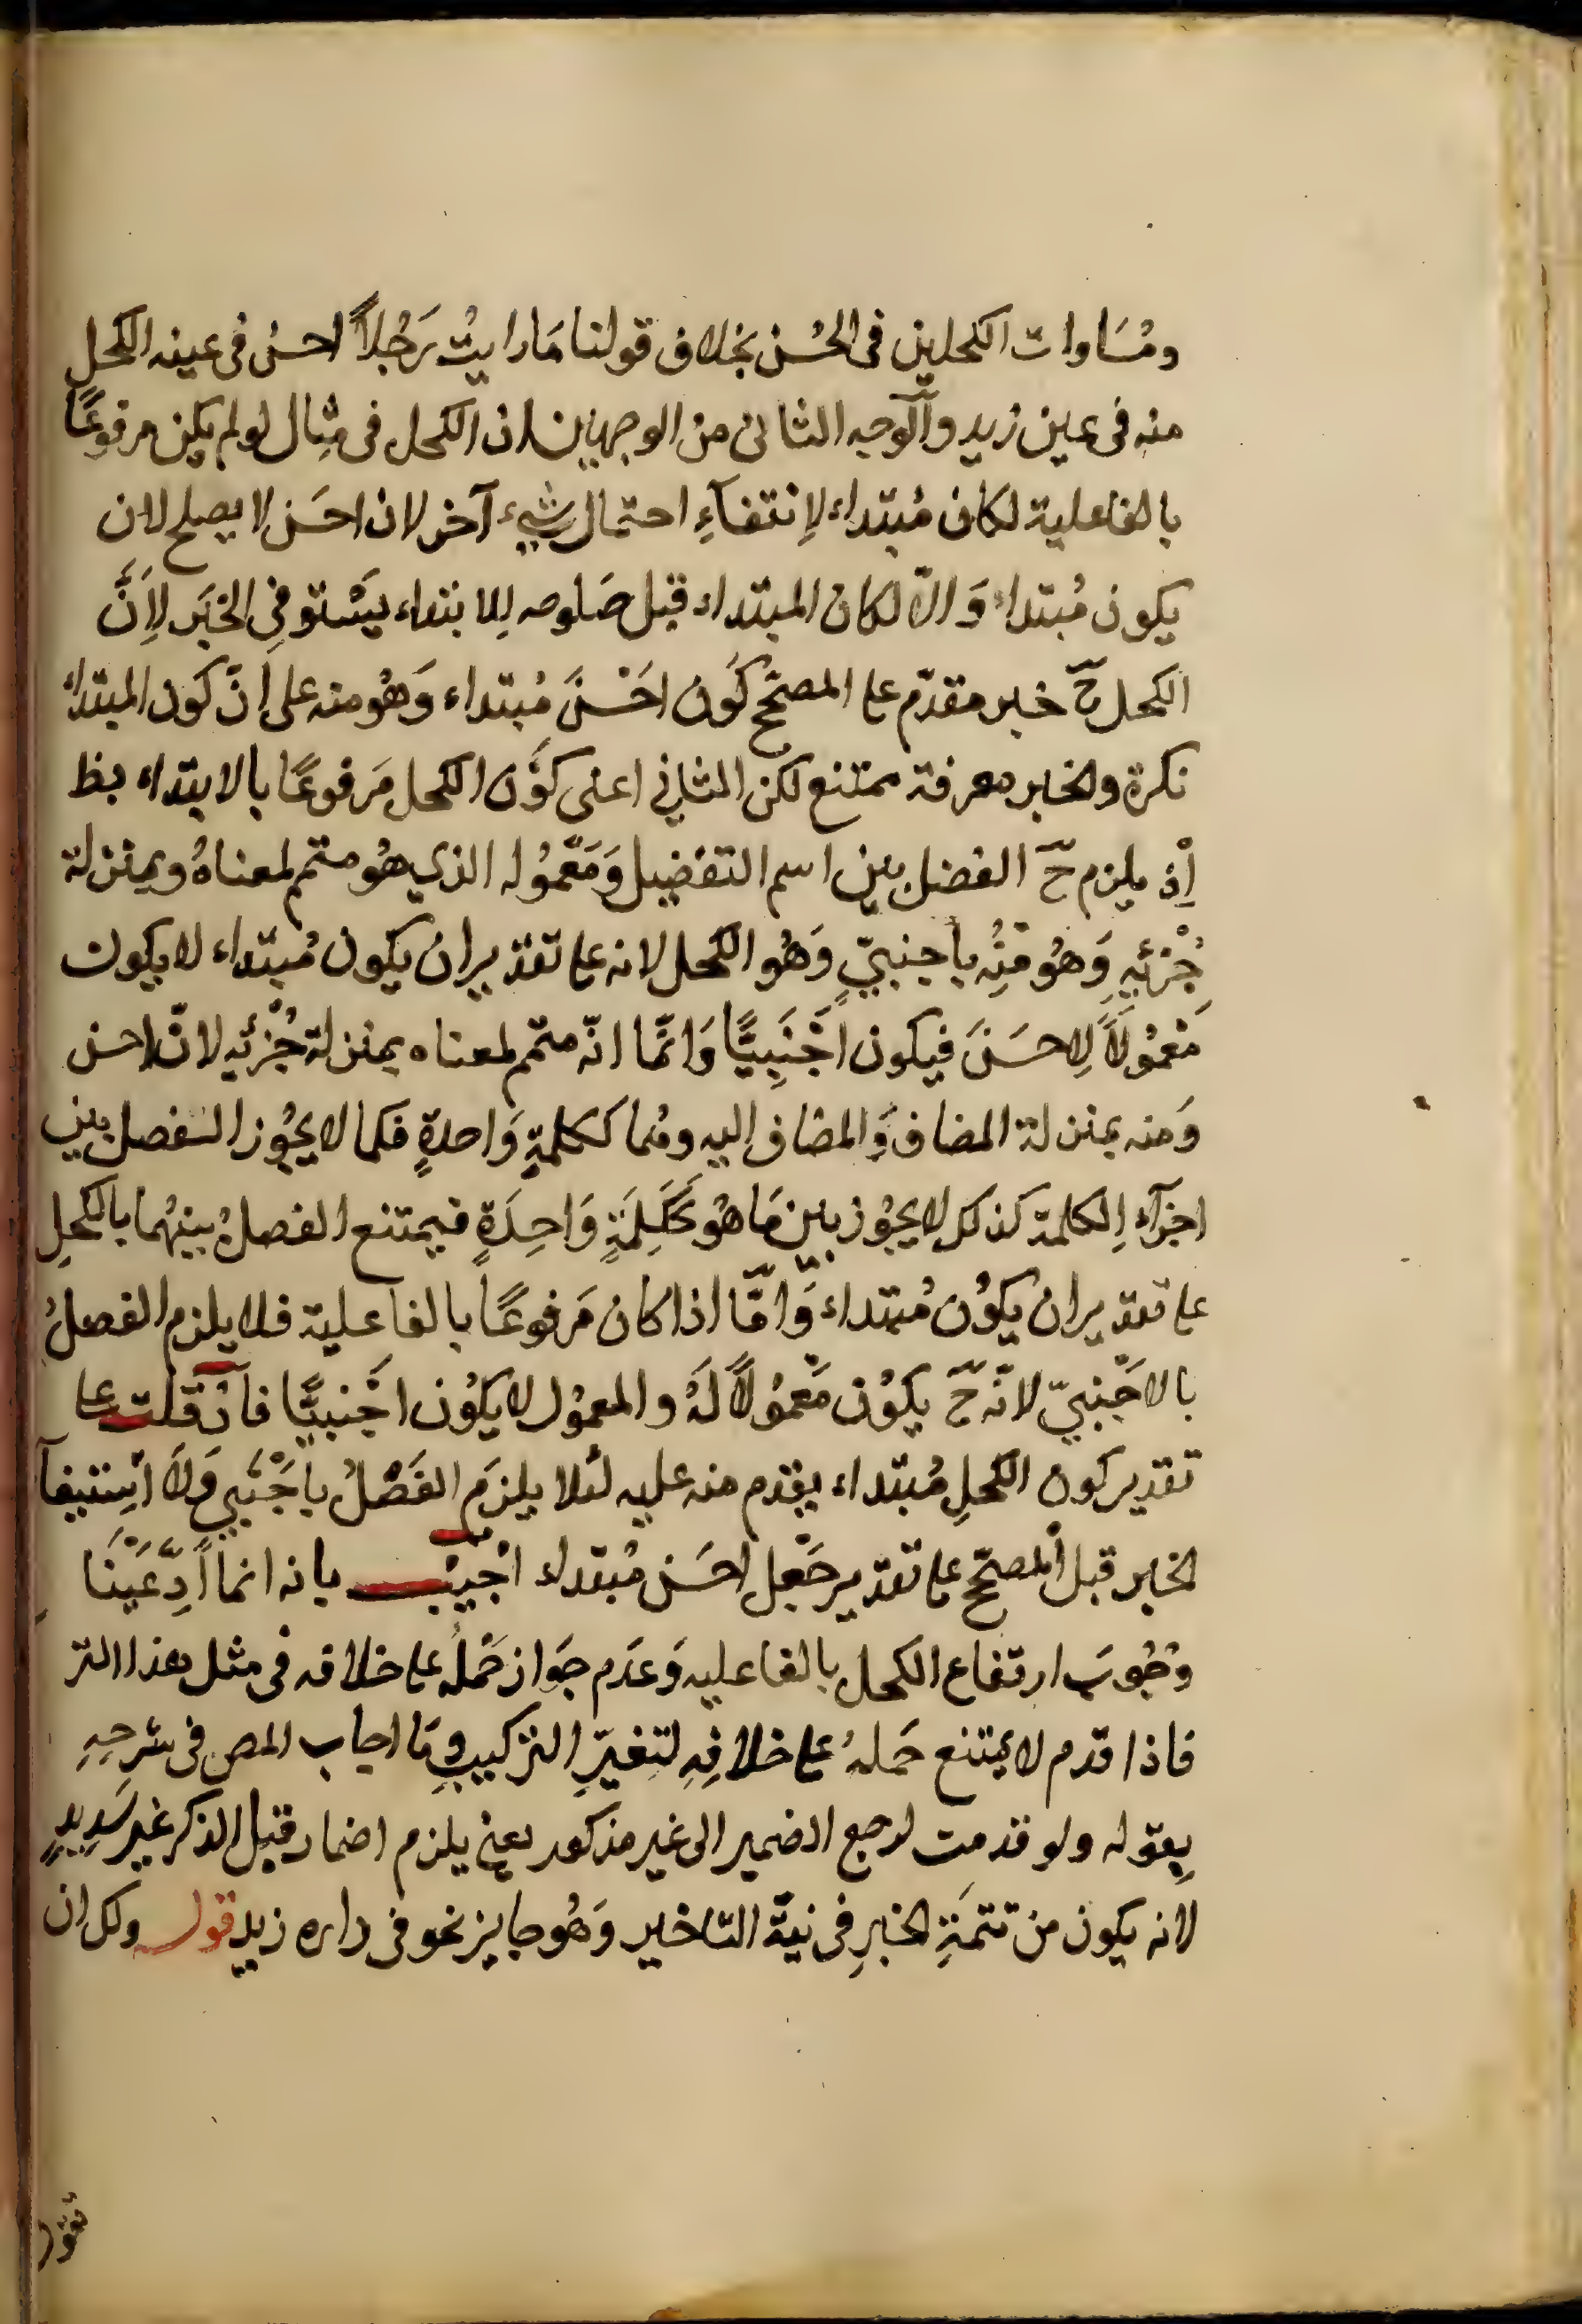 ومُسَاوات الكحلين فى الحُسْن بخلاف قولنا مَا رايتُ رَجُلاً احسنُ فى عينه الكحل
منه فى عين زيد وَالوجه الثانى من الوجهين ان الكحل فى مِثال لو لم يكن مرفوعًا
بالفاعلية لكان مُبتداء لاِنتفآءِ احتمال شيء آخر لان احسَن لا يصلح لان
يكون مُبتداء وَالاّ لكان المبتداء قبل صَلوحه للابتداء يَسْتوفِى الخبَر لِاَنَّ
الكحل حّ خبر مقدّم على المصحّح كَون احَسْنَ مُبتداء وَهُو منه على انّ كون المبتداء
نكرة والخبر معرفة ممتنع لكن الثانِي اعنى كَوْن الكحل مَرفوعًا بالابتداء بط
اِذ يلزم حّ الفصل بين اسم التفضيل وَمَعْمُوله الذي هُو متمم لمعناهُ وبمنزلة
جُزْئِهِ وَهُو مِنْهُ باَجنبيّ وَهُو الكحل لانه على تقدير ان يكون مُبتداء لا يكون
مَعْمُولاً لِاحسَنَ فيكون اَجْنَبِيًّا وَانّما انّه متمّم لمعناه بمنزلة جُزْئِه لانّ احسن
وَمنه بمنزلة المضاف وَالمضاف اليه وهُما ككلمةٍ وَاحدةٍ فكما لا يجُوز الفصل بين
اجزآءِ الكلمة كذلك لا يجُوز بين مَا هُو كَكَلِمَةٍ وَاحِدَةٍ فيمتنع الفصلُ بينهُما بالكحلِ
على تقدير ان يكوُن مُبتداء وَامّا اذا كان مَرفوعًا بالفاعلية فلا يلزم الفصلُ
بالاجْنبيّ لانّه حّ يكوُن مَعْمُولاً لَهُ والمعمُول لا يكوُن اجْنبيًّا فآن قلت على
تقدير كون الكحلِ مُبتداء يقدم منه عليه لئلا يلزمَ الفَصْلُ باَجْنَبي وَلَا اسْتيفآ
الخبر قبل المصحّح على تقدير جَعْل احسَن مُبتداء اجُيْبـ بانه انما اَدِّعَيْنَا
وُجُوبَ ارتفاع الكحل بالفاعليه وَعَدَم جوَاز حَمْلُه على خلافه فى مثل هذا التر
فاذا قدم لا يمتنع حَملهُ على خلافِهِ لتغيّرِ التركيبِ وَمَا اجاب المص فى شرحِهِ
بِقوله ولو قدمت لرجع الضمير الى غير مذكور يعني يلزم اضمار قبل الذكر غير سَدِيدٍ
لانه يكون من تتمَةِ الخبرِ فى نيّة التاخير وَهُو جايز نحو فى داره زيد قوله ولك ان
تقول